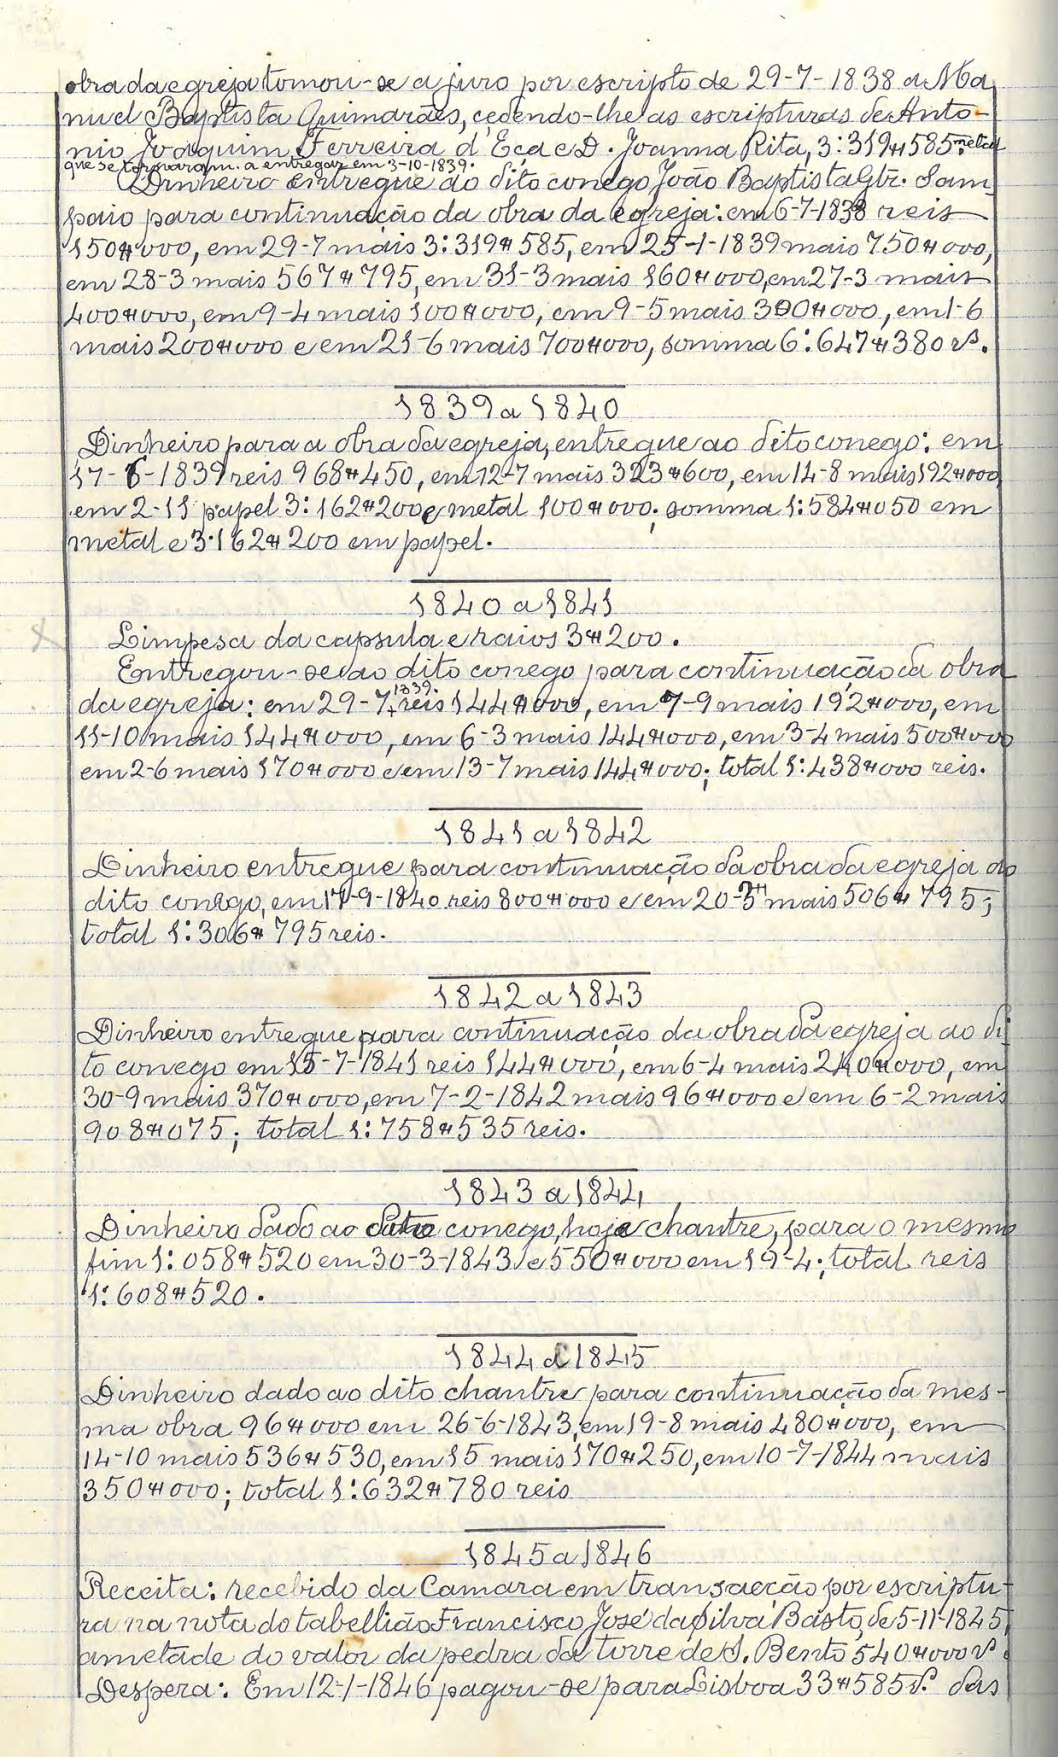 obra da egreja tomou-se a juro por escripto de 29-7-1838 a Ma
nuel Baptista Guimarães, cedendo-lhe as escripturas de Anto-
nio Joaquim Ferreira d'Eça e D. Joanna Rita, 3:319$585 metal
que se tornaram a entregar em 3-10-1839.
Dinheiro entregue ao dito conego João Baptista Glz. Sam
paio para continuação da obra da egreja: em 6-7-1838 reis
150$000, em 29-7 mais 3:319$585, em 25-1-1839 mais 750$000,
em 28-3 mais 567$795, em 31-3 mais 160$000, em 27-3 mais
400$000, em 9-4 mais 100$000, em 9-5 mais 300$000, em 1-6
mais 200$000 e em 21-6 mais 700$000, somma 6:647$380 rs.
1839 a 1840
Dinheiro para a obra da egreja, entregue ao dito conego: em
17-6-1839 reis 968$450, em 12-7 mais 323$600, em 14-8 mais 192$000
em 2-11 papel 3:162$200 e metal 100$000; somma 1:584$050 em
metal e 3:162$200 em papel.
1840 a 1841
Limpesa da capsula e raios 3$200.
Entregou-se ao dito conego para continuação da obra
da egreja: em 29-7-1839 reis 144$000, em 7-9 mais 192$000, em
11-10 mais 144$000, em 6-3 mais 144$000, em 3-4 mais 500$000
em 2-6 mais 170$000 e em 13-7 mais 144$000; total 1:438$000 reis.
1841 a 1842
Dinheiro entregue para continuação da obra da egreja ao
dito conego, em 17-9-1840 reis 800$000 e em 20-3 mais 506$795;
total 1:306$795 reis.
1842 a 1843
Dinheiro entregue para continuação da obra da egreja ao di
to conego em 15-7-1841 reis 144$000, em 6-4 mais 240$000, em
30-9 mais 370$000, em 7-2-1842 mais 96$000 e em 6-2 mais
908$075; total 1:758$535 reis.
1843 a 1844
Dinheiro dado ao dito conego, hoje chantre, para o mesmo
fim 1:058$520 em 30-3-1843 e 550$000 em 19-4; total reis
1:608$520.
1844 a 1845
Dinheiro dado ao dito chantre para continuação da mes-
ma obra 96$000 em 26-6-1843, em 19-8 mais 480$000, em
14-10 mais 536$530, em 15 mais 170$250, em 10-7-1844 mais
350$000; total 1:632$780 reis
1845 a 1846
Receita: recebido da Camara em transacção por escriptu-
ra na nota do tabellião Francisco José da Silva Basto, de 5-11-1845,
ametade do valor da pedra da torre de S. Bento 540$000 rs.
Despera: Em 12-1-1846 pagou-se para Lisboa 33$585 rs. das